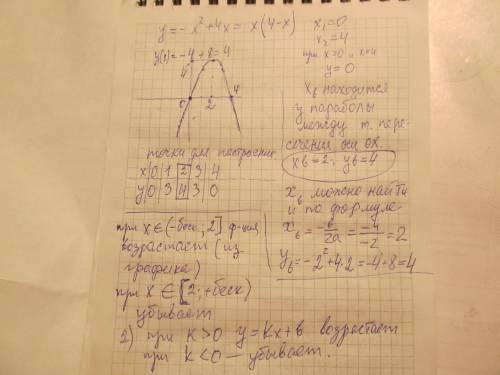 y = - x² + 4x = x(4-x)
x₁ = 0
x₂ = 4
при x=0 и x=4
y = 0
y(2) = -4 + 8 = 4
4
0 2 4
xв находится
у параболы
между т. пере-
сечения оси ox.
xв = 2; yв = 4
точки для построения
x 0 1 2 3 4
y 0 3 4 3 0
xв можно найти
и по формуле
xв = -b/2a = -4/-2 = 2
yв = -2² + 4·2 = -4+8 = 4
при x ∈ (-беск; 2] ф-ция
возрастает (из
графика)
при x ∈ [2; +беск)
убывает
2) при k > 0 y = kx + b возрастает
при k < 0 — убывает.